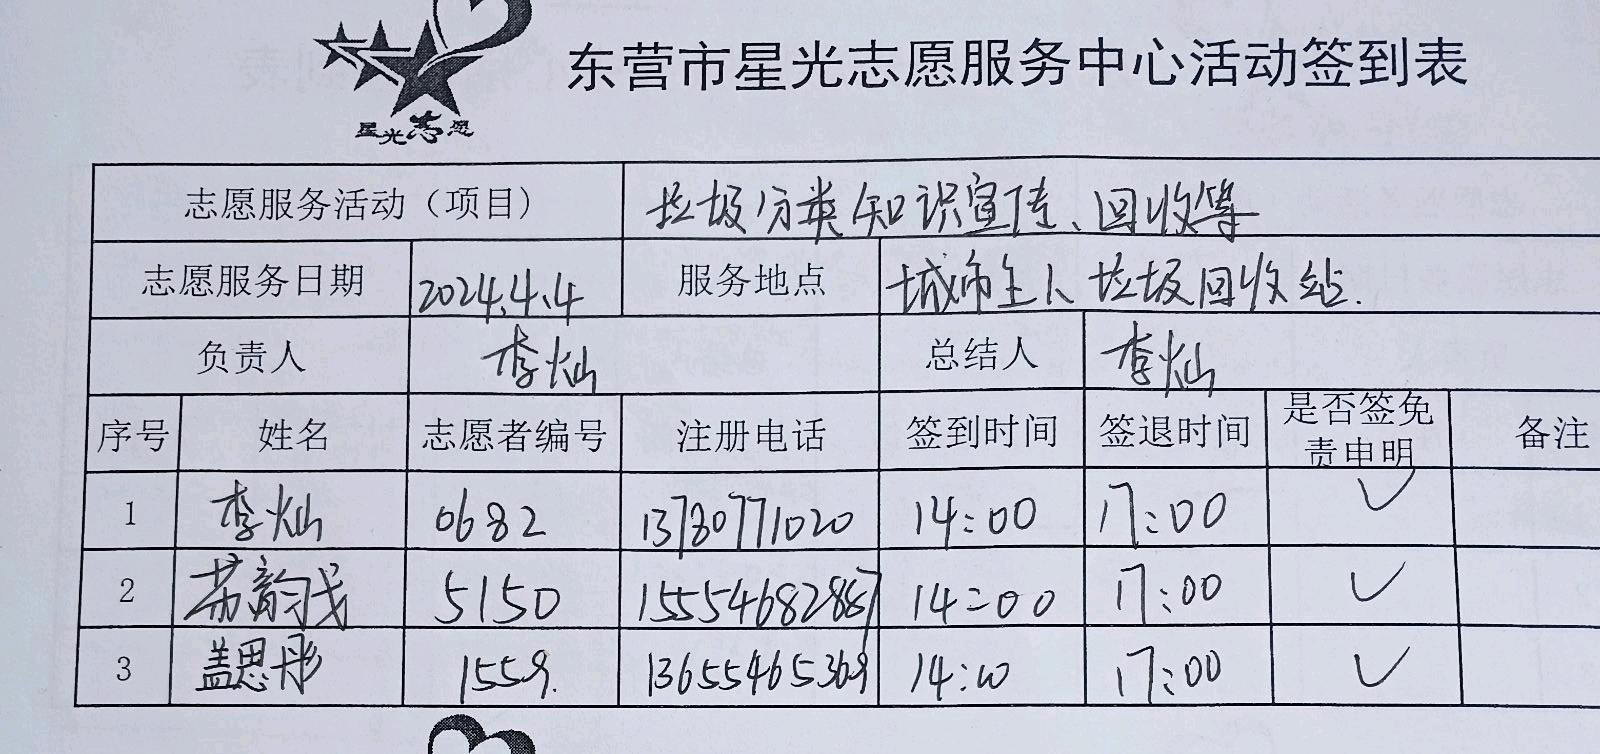 东营市星光志愿服务中心活动签到表
星光志愿
志愿服务活动（项目） 垃圾分类知识宣传、回收等
志愿服务日期 2024.4.4 服务地点 城市主人垃圾回收站.
负责人 李灿 总结人 李灿
序号 姓名 志愿者编号 注册电话 签到时间 签退时间 是否签免责申明 备注
1 李灿 0682 13780771020 14:00 17:00 ✓
2 苏韵戈 5150 15554682887 14:00 17:00 ✓
3 盖思彤 1559. 13655465369 14:00 17:00 ✓